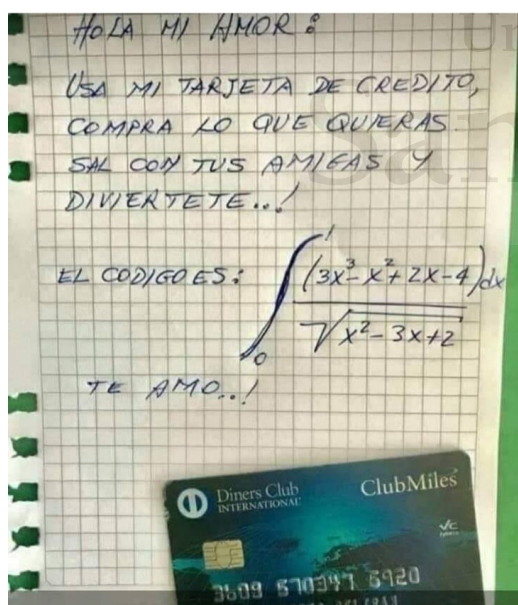 HOLA MI AMOR:
USA MI TARJETA DE CREDITO,
COMPRA LO QUE QUIERAS
SAL CON TUS AMIGAS Y
DIVIERTETE..!
EL CODIGO ES: ∫₀¹ (3x³-x²+2x-4)dx / √x²-3x+2
TE AMO..!
Diners Club ClubMiles
INTERNATIONAL